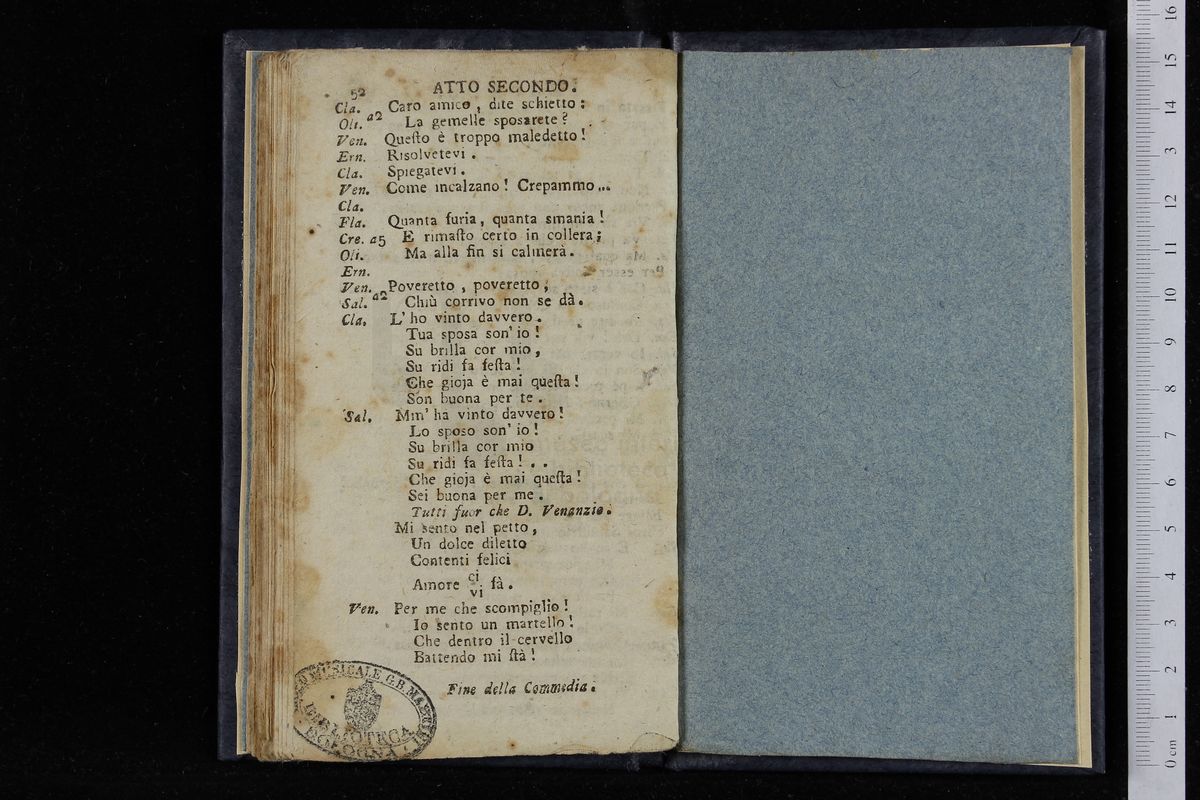 52 ATTO SECONDO.
Cla. Caro amico, dite schietto:
Oli. a2 La gemelle sposarete?
Ven. Queſto è troppo maledetto!
Ern. Risolvetevi.
Cla. Spiegatevi.
Ven. Come incalzano! Crepammo...
Cla.
Fla. Quanta furia, quanta smania!
Cre. a5 E rimaſto certo in collera;
Oli. Ma alla fin si calmerà.
Ern.
Ven. Poveretto, poveretto,
Sal. a2 Chiù corrivo non se dà.
Cla. L'ho vinto davvero.
Tua sposa son' io!
Su brilla cor mio,
Su ridi fa feſta!
Che gioja è mai queſta!
Son buona per te.
Sal. Mm' ha vinto davvero!
Lo sposo son' io!
Su brilla cor mio
Su ridi fa feſta! . .
Che gioja è mai queſta!
Sei buona per me.
Tutti fuor che D. Venanzio.
Mi sento nel petto,
Un dolce diletto
Contenti felici
Amore ci
vi fà.
Ven. Per me che scompiglio!
Io sento un martello!
Che dentro il cervello
Battendo mi ſtà!
Fine della Commedia.
MUSICALE G.B. MARTINI
BIBLIOTECA
BOLOGNA
0 cm 1 2 3 4 5 6 7 8 9 10 11 12 13 14 15 16